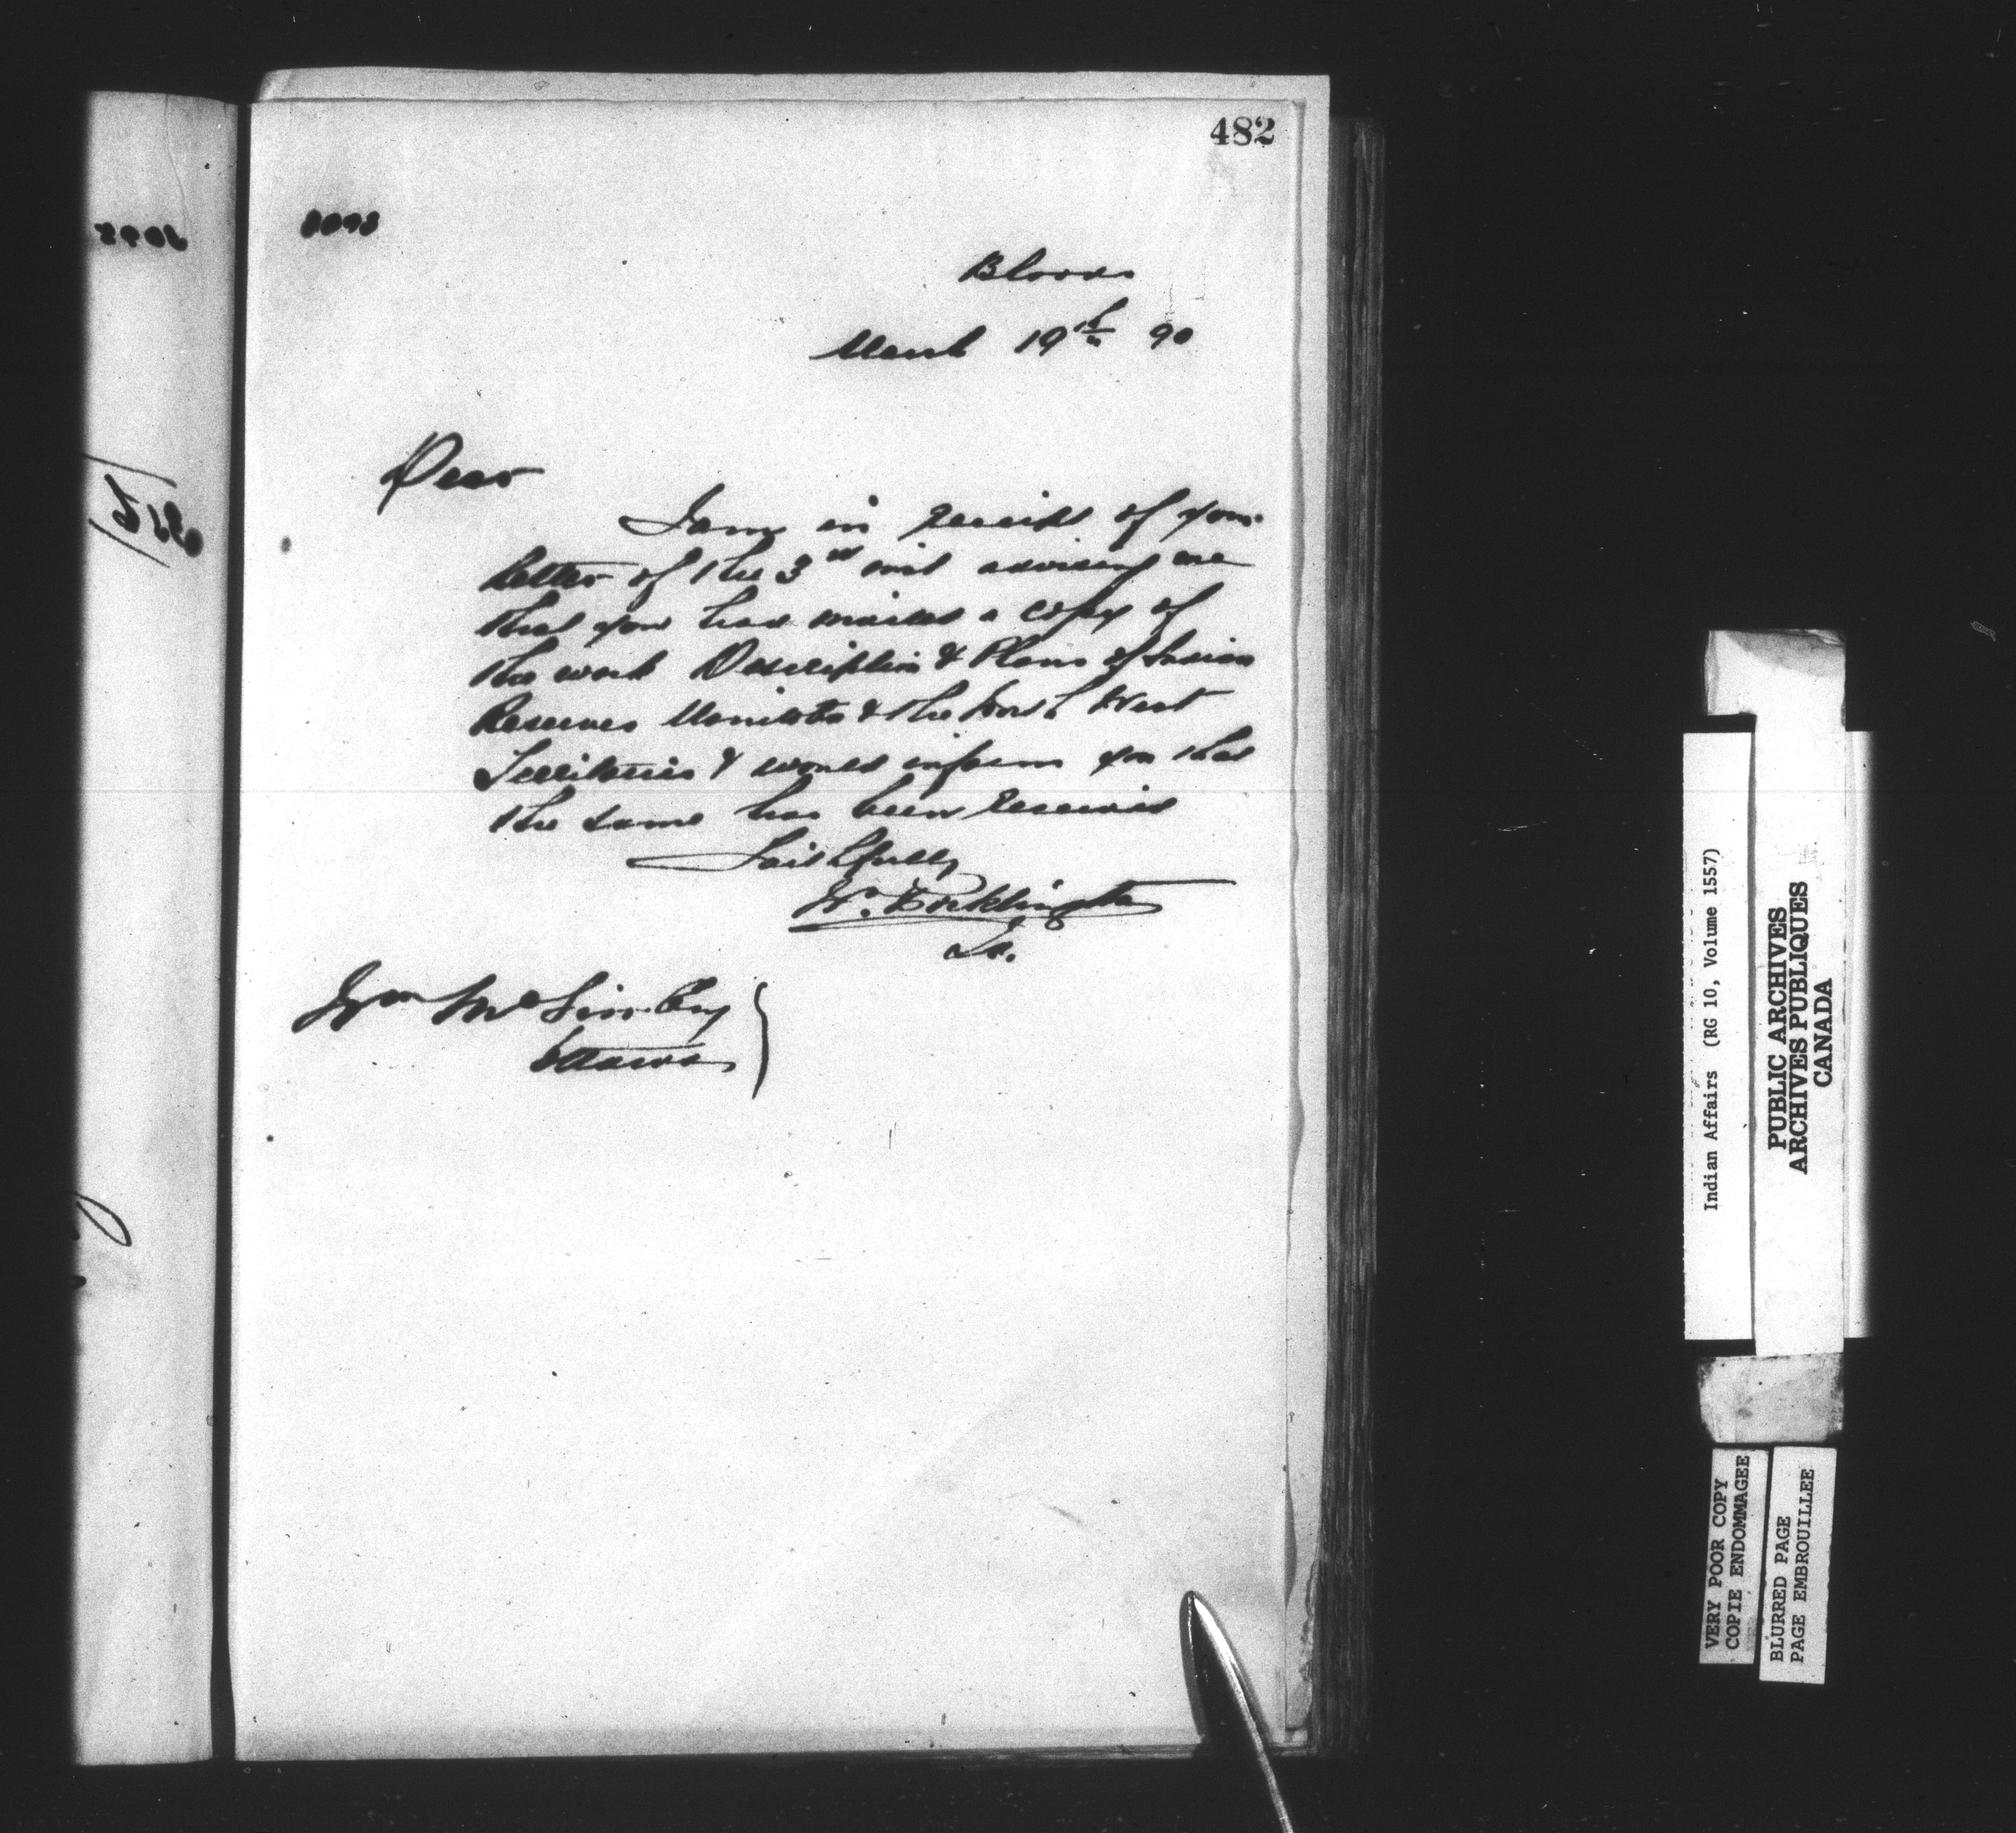 482
Bloods
March 19th 90
Dear
I am in receipt of your
letter of the 3rd inst advising me
that you had mailed a copy of
the work Description & Plans of Indian
Reserves Manitoba & the North West
Territories & would inform you that
the same has been received
Faithfully
W. Pocklington
Wm Mc
Ottawa
Indian Affairs (RG 10, Volume 1557)
PUBLIC ARCHIVES
ARCHIVES PUBLIQUES
CANADA
VERY POOR COPY
COPIE ENDOMMAGEE
BLURRED PAGE
PAGE EMBROUILLEE